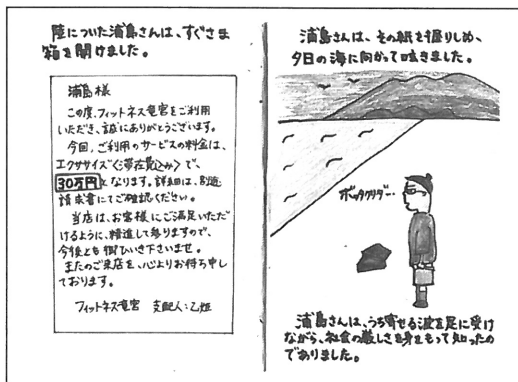 陸についた浦島さんは、すぐさま
箱を開けました。
浦島様
この度、フィットネス竜宮をご利用
いただき、誠にありがとうございます。
今回、ご利用のサービスの料金は、
エクササイズ〈滞在費込み〉で、
30万円となります。詳細は、別途
請求書にてご確認ください。
当店は、お客様にご満足いただ
けるように、精進して参りますので、
今後とも御ひいき下さいませ。
またのご来店を、心よりお待ち申し
ております。
フィットネス竜宮 支配人:乙姫
浦島さんは、その紙を握りしめ、
夕日の海に向かって呟きました。
ボッタクリダ…
浦島さんは、うち寄せる波を足に受け
ながら、社会の厳しさを身をもって知ったの
でありました。